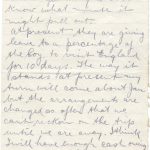 know what it
might pull out.
At present they are giving
leave to a percentage of
the boys to visit England
for 10 days. The way it
stands at present my
turn will come about Jan
but the arrangements are
changed so often that we
can't reckon on the trip
until we are away. I think
I will have enough cash over